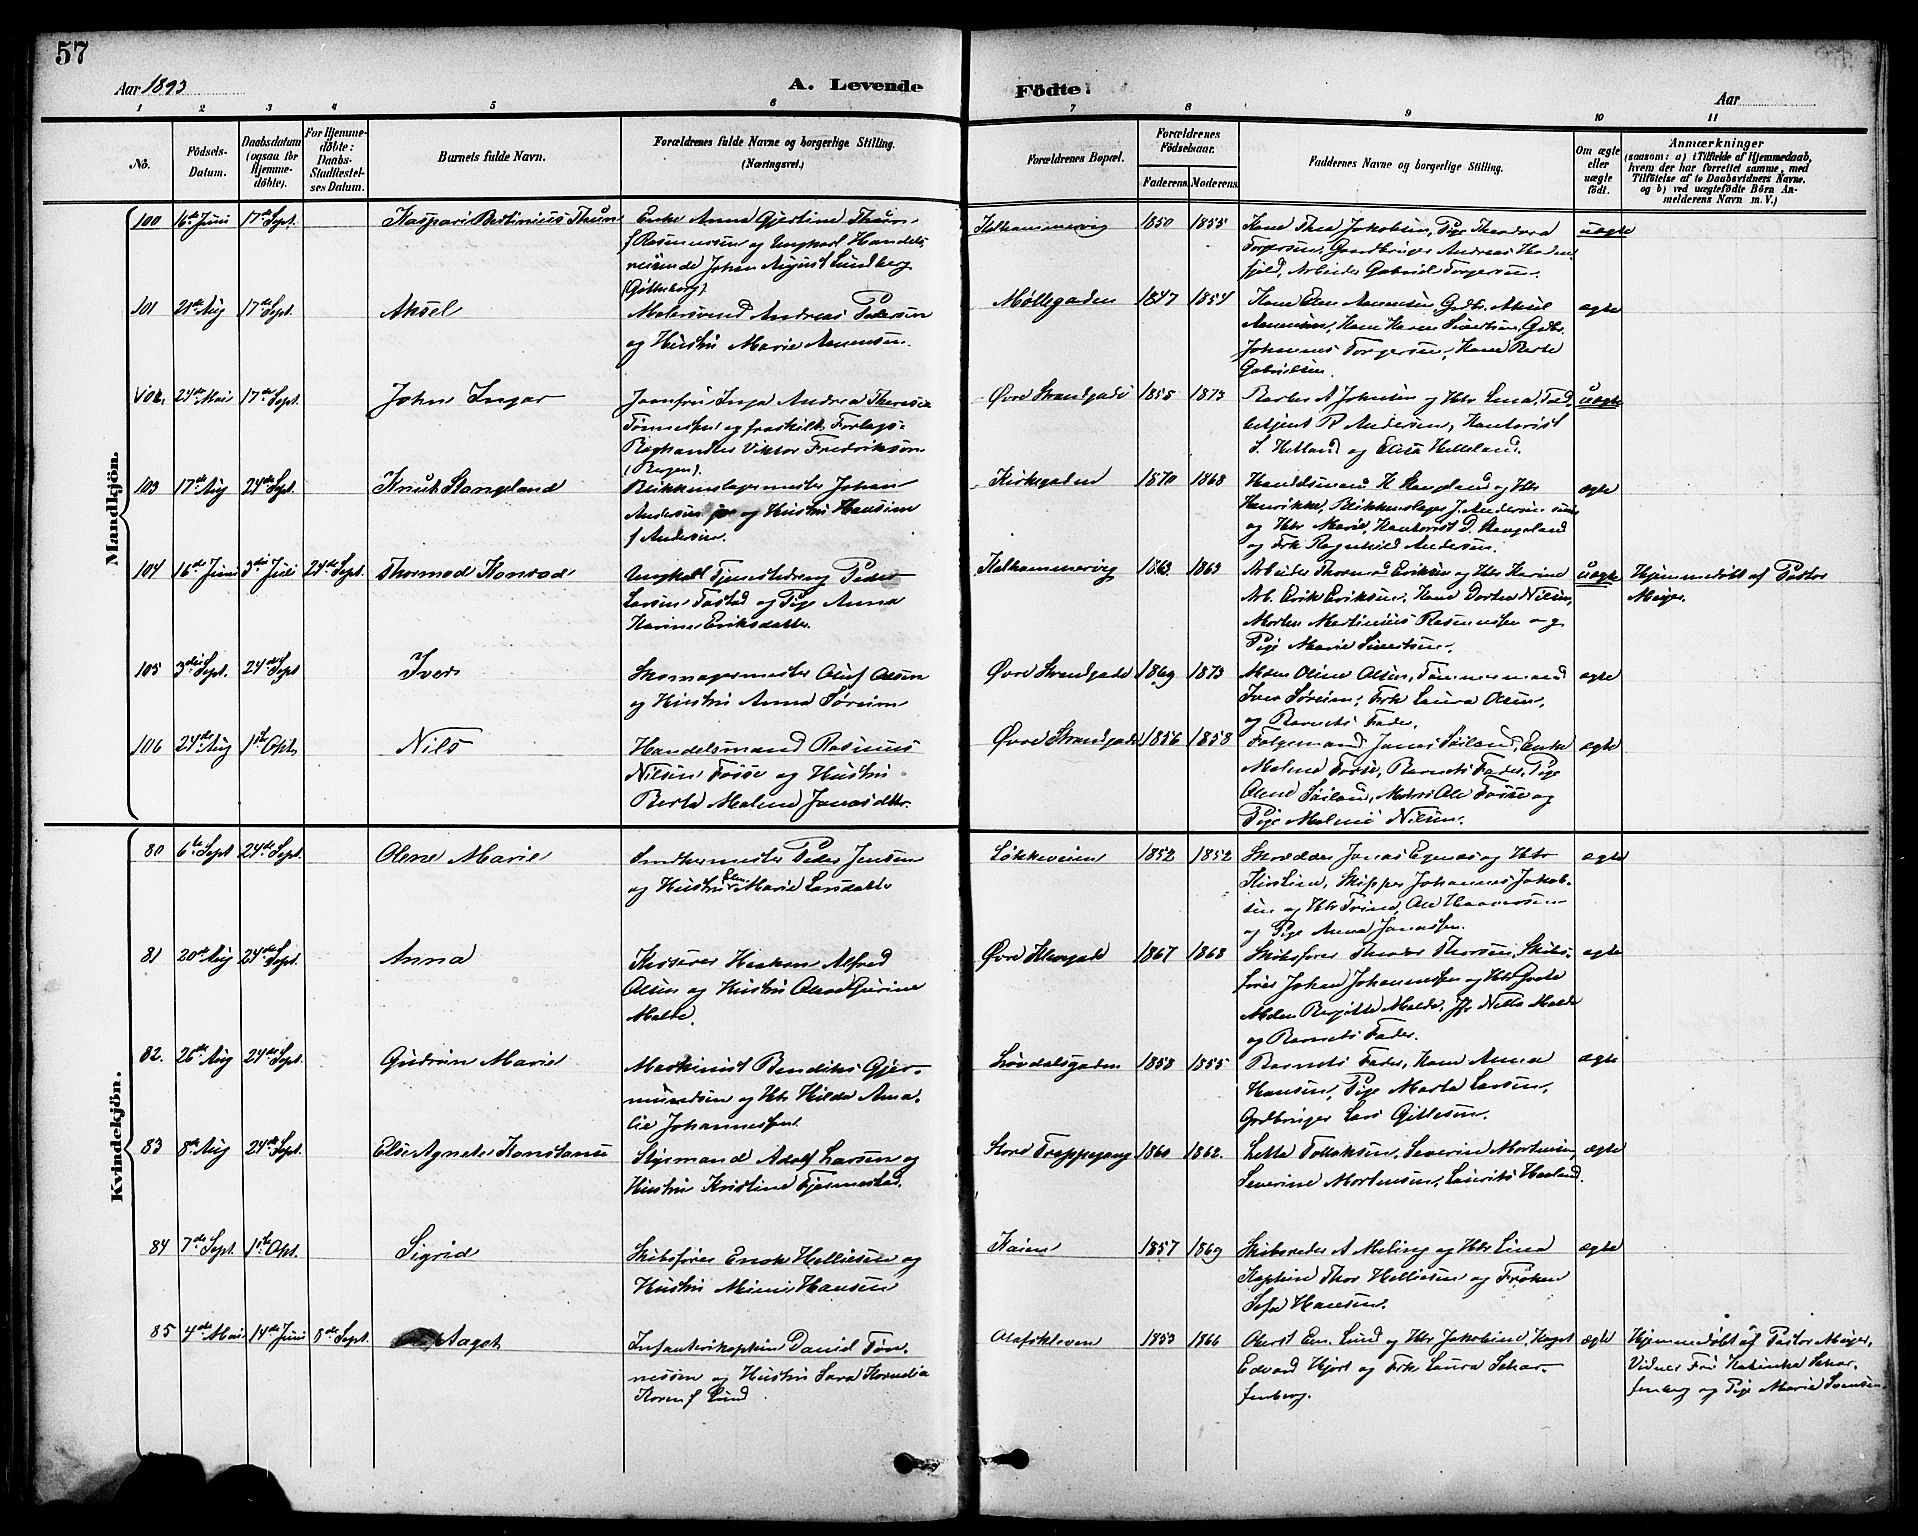 57
Aar 1893
A. Levende
Födte.
Aar
1 2 3 4 5 6 7 8 9 10 11
No.
Födsels-Datum.
Daabsdatum (ogsaa for Hjemme-döbte).
For Hjemme-döbte: Daabs-Stadfestel-ses Datum.
Barnets fulde Navn.
Forældrenes fulde Navne og borgerlige Stilling. (Næringsvei.)
Forældrenes Bopæl.
Forældrenes Födselsaar.
Faderens. Moderens.
Faddernes Navne og borgerlige Stilling.
Om ægte eller uægte födt.
Anmærkninger
(saasom: a) i Tilfælde af Hjemmedaab,
hvem der har forrettet samme, med
Tilföielse af to Daabsvidners Navne.
og b) ved uægtefödte Börn An-
melderens Navn m. V.)
Mandkjön.
100 16de Juni 17de Sept. Kaspara Bertinius Thum
Enke Anna Gjertine Thum
f Rasmussen og Ungkarl Handels
reisende Johan August Lundberg
(Gøtheborg)
Kalhammervig 1850 1855
Kone Thea Jakobsen, Pige Theodora
Torgersen, Gaardbruger Andreas
fjeld, Arbeider Gabriel Torgersen
uægte
101 21de Aug 17de Sept. Aksel
Malersvend Andreas Pedersen
og Hustru Marie Aanensen.
Møllegaden 1847 1854
Kone Elen Aanensen Gdbr. Aksel
Aanensen, Kone Karen Sivertsen, Gdbr.
Johannes Torgersen, Kone Berte
Gabrielsen.
ægte
102. 24de Mai 17de Sept. John Ingar
Jomfru Inga Andrea Theresie
Tønnesen og fraskilt Forlags-
Boghandler Viktor Fredriksen
(Bergen).
Øvre Strandgade 1855 1873
Barber A Johnsen og Htr Lena, Told
betjent P Andersen, Kontorist
S. Hetland og Elisa Helland.
uægte
103 17de Aug 24de Sept. Knut Stangeland
Blikkenslagermester Johan
Andersen jr og Hustru Hansine
f Andersen.
Kirkegaden 1870 1868
Handelsmand K Stangeland og Htr
Henrikke, Blikkenslager J. Andersen sen
og Htr Marie, Kontorist D. Stangeland
og Frk Ragnhild Andersen.
ægte
104 16de Juni 3die Juli 24de Sept. Thormod Konrad
Ungkarl Tjenestedreng Peder
Larsen Tastad og Pige Anna
Karine Eriksdatter.
Kalhammervig 1863 1863
Arbeider Thormod Eriksen og Htr Karine
Arb. Erik Eriksen, Kone Dorthea Nilsen,
Morten Martinius Rasmussen og
Pige Marie Sivertsen.
uægte
Hjemmedøbt af Pastor
Meyer.
105 3die Sept. 24de Sept Iver
Skomagermester Oluf Olsen
og Hustru Anna Søreim
Øvre Strandgade 1869 1873
Mdm Oline Olsen, Tømmermand
Iver Søreim, Frk Laura Olsen,
og Barnets Fader.
ægte
106 24de Aug 1ste Okt. Nils
Handelsmand Rasmus
Nilsen Fosse og Hustru
Berta Malene Jonasdtr.
Øvre Strandgade 1856 1858
Folgemand Jonas Soiland, Enke
Malene Fosse, Barnets Fader, Pige
Olene Soiland, Matros Ole Fosse og
Pige Malene Nilsen.
ægte
Kvindekjön.
80 6te Sept 24de Sept. Olene Marie
Snedkermester Peder Jensen
og Hustru Elen Marie Larsdatter
Løkkeveien 1852 1852
Skrædder Jonas Egenæs og Htr
Kirstine, Skipper Johannes Jakob-
sen og Htr Trine, Ole Haaversen
og Pige Anna Jonassen.
ægte
81 20de Aug 24de Sept. Anna
Kasserer Haakon Alfred
Olsen og Hustru Olava Gurine
Malde.
Øvre Klevegade 1867 1868
Skibsfører Theodor Thorsen, Skibs-
fører Johan Johannessen og Htr Grete
Mdm Birgitte Malde, Jfr Nella Malde
og Barnets Fader.
ægte
82. 26de Aug 24de Sept Gudrun Marie
Maskinist Bendiks Gjer-
mundsen og Htr Hilda Ama-
lie Johannessen
Løvdalsgaden 1853 1855
Barnets Fader, Kone Anna
Hansen, Pige Marta Larsen,
Gaardbruger Lars Gittesen.
ægte
83 8de Aug 24de Sept. Else Agnete Konstanse
Styrmand Adolf Larsen og
Hustru Kristine Tjemestad.
Store Trappegang 1860 1862.
Lette Tollaksen, Severin Mortensen,
Severine Mortensen, Laurits Haaland.
ægte
84 7de Sept. 1ste Okt. Sigrid
Skibsfører Enok Helliesen og
Hustru Mimi Hansen
Kaien 1857 1869
Skibsreder A Meling og Htr Lina
Kaptein Thor Helliesen og Frøken
Sofa Hansen.
ægte
85 4de Mai 14de Juni 8de Sept. Aagot
Infanterikaptein Daniel Tøn-
nessen og Hustru Sara Kornelia
Koren f Lund
Olafskleven 1853 1866
Oberst Em. Lund og Htr Jakobine, Kapt
Edvard Hjort og Frk Laura Schar-
fenberg.
ægte
Hjemmedøbt af Pastor Meyer,
Vidner Fru Katinka Schar-
fenberg og Pige Marie Svendsen.